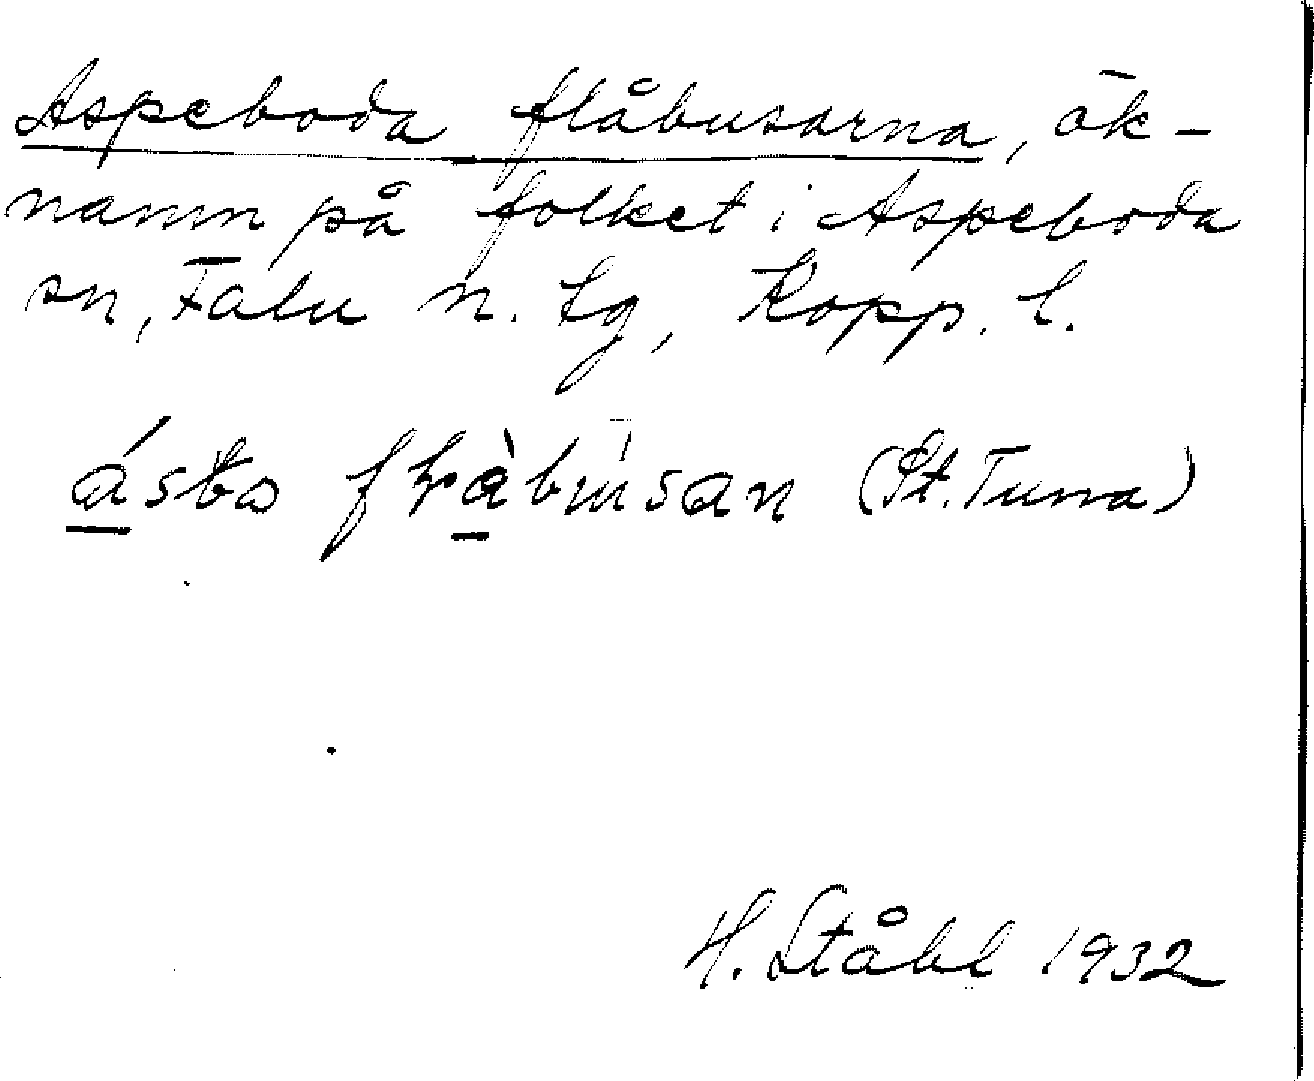 Aspeboda flåbusarna, ök-
namn på folket i Aspeboda
sn, Falu n. tg, Kopp. l.
(St. Tuna)
H. Ståhl 1932